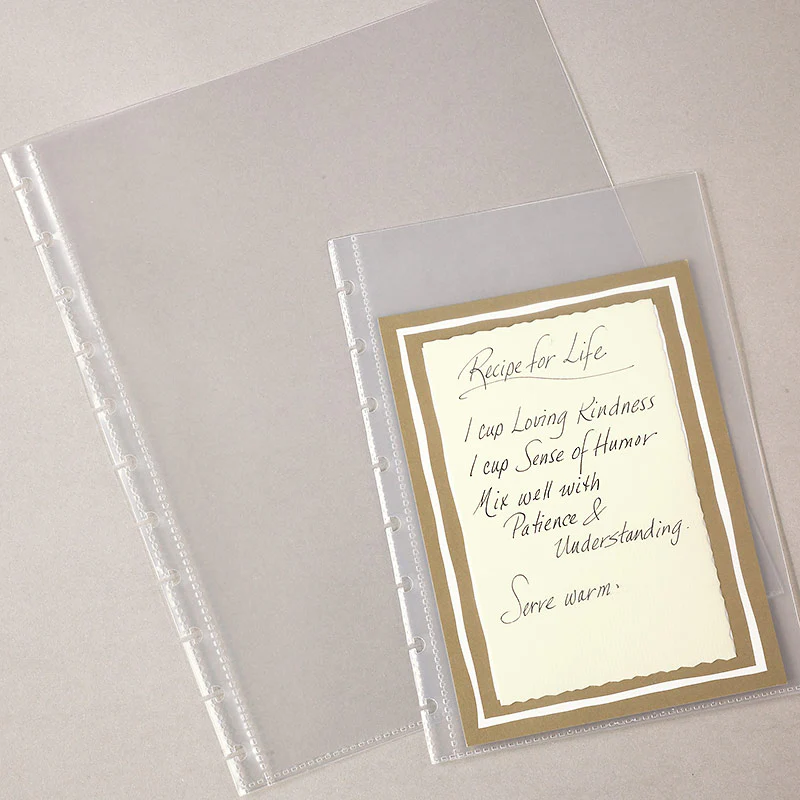 Recipe for Life
1 cup Loving Kindness
1 cup Sense of Humor
Mix well with
Patience &
Understanding.
Serve warm.